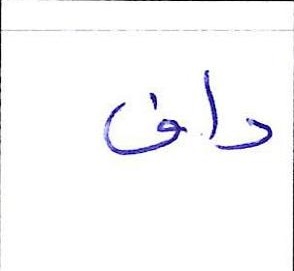 داف